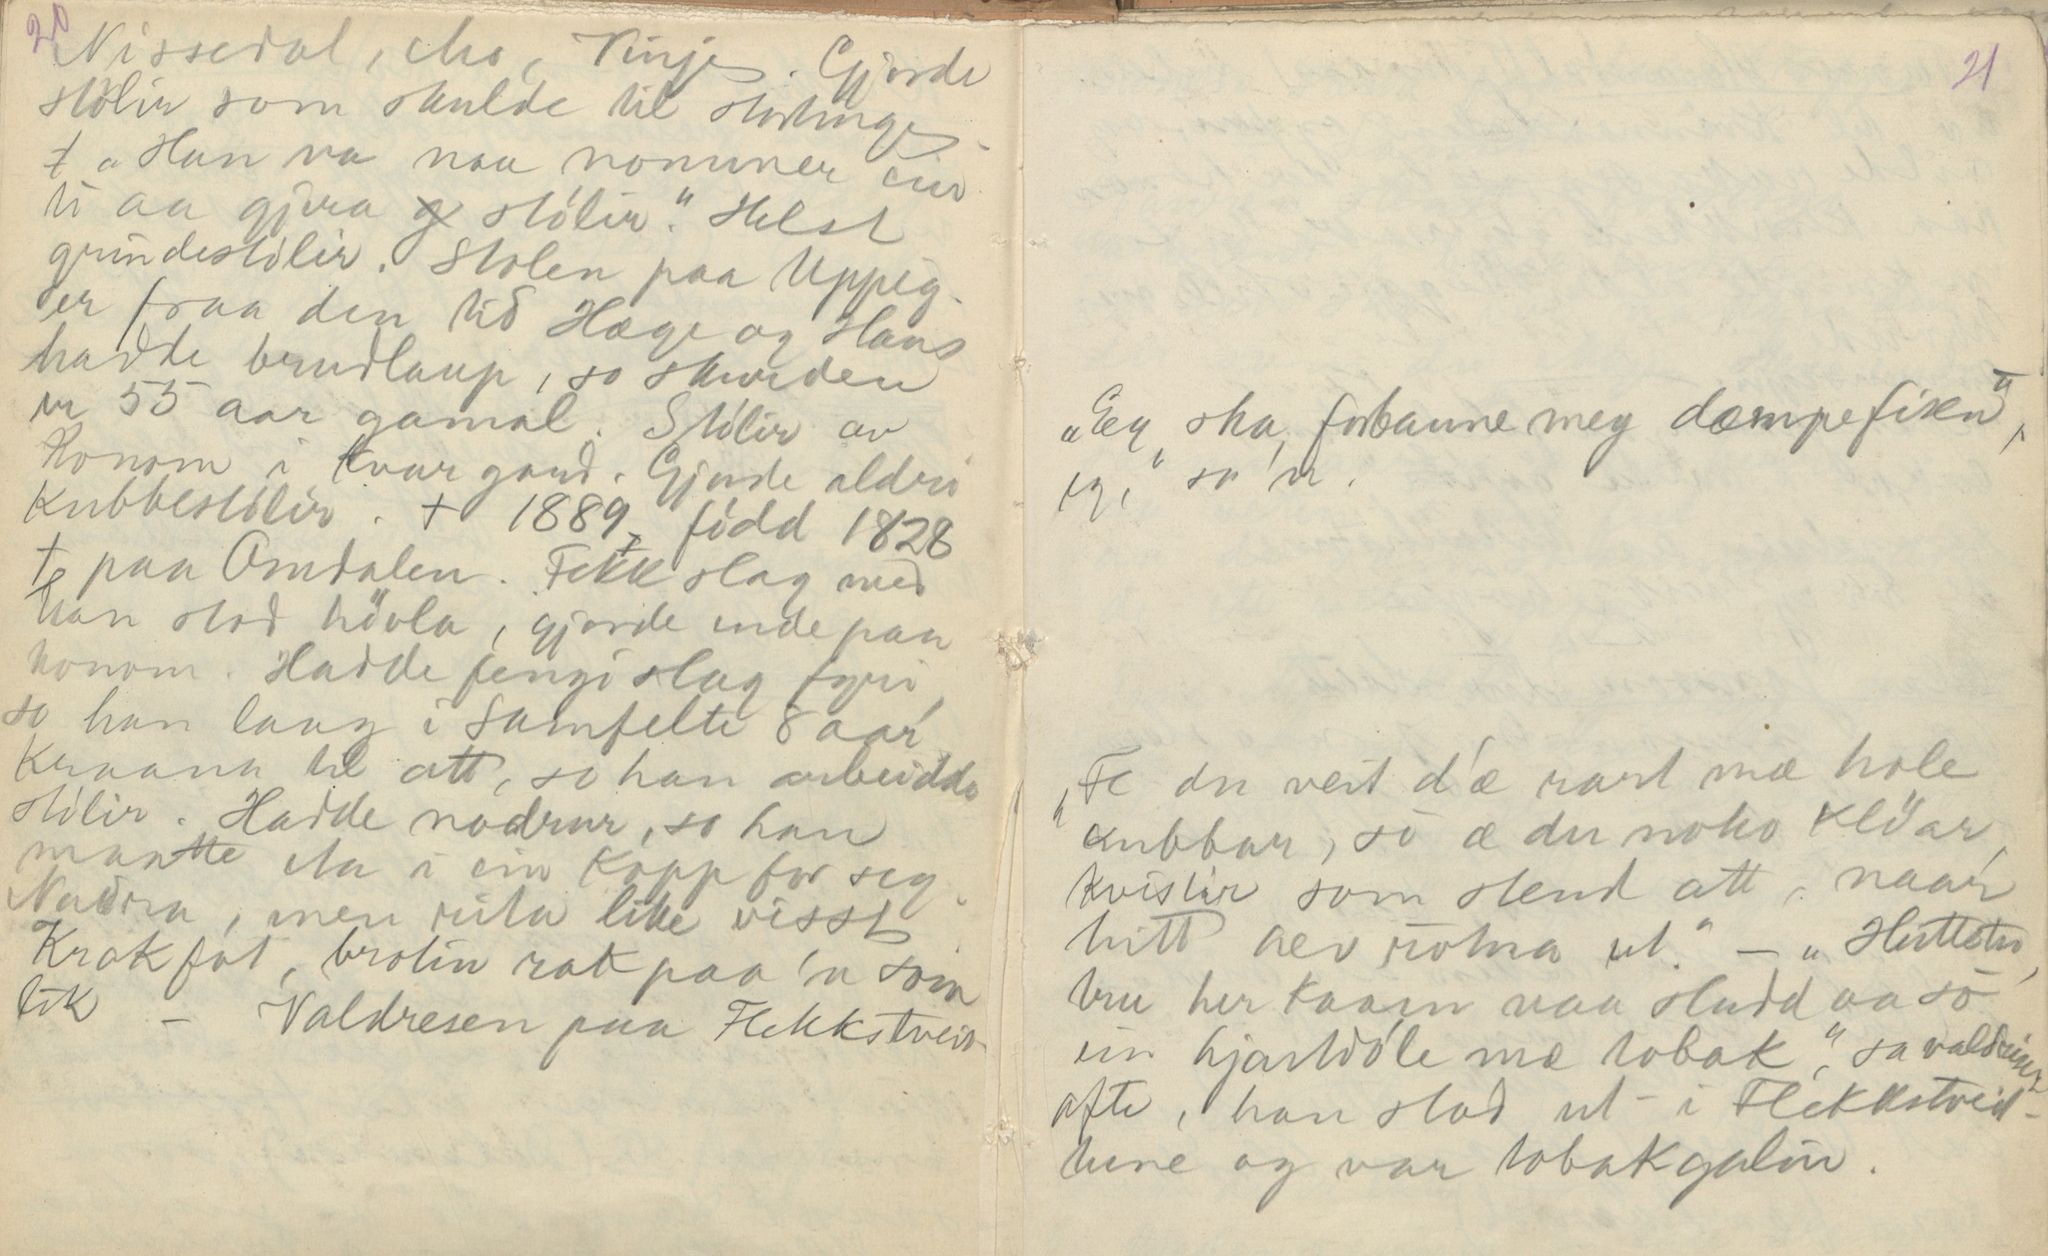 20
Nissedal, Mo, Vinje. Gjorde
stólir som skulde til stortinge
t. „Han va naa nommer ein
ti aa gjera stólir." Helst
grindestólir. Stolen paa Uppeg.
er fraa den tid Hæge og Hans
hadde brudlaup, so skurden
er 55 aar gamal. Stólir av
honom i kvar gard. Gjorde aldri
kubbestólir. † 1889, född 1828
† paa Omdalen. Fekk slag med
han stod hövla, gjorde ende paa
honom. Hadde fengi slag fyri,
so han laag i Samfelte 8 aar,
kraana til att, so han arbeidde
stólir. Hadde nodrur, so han
maatte ha i ein kopp for seg.
Nadra, men rita like visst
Krakfot, brotin rak paa 'n som
lik — Valdresen paa Flekkstveit
21
„Eg ska, forbanne meg dæmpe fisen",
eg," sa 'n.
„Fe du veit d'æ rart mæ hole
kubbar, so æ du noko klöar,
kvistir som stend att, naar
hitt aev rotna ut." — „
her kaam naa stadd aa so
ein hjartdöle mæ tobak," sa valdrisen
ofte, han stod ut i Flekkstveid-
tune og var tobakgalin.